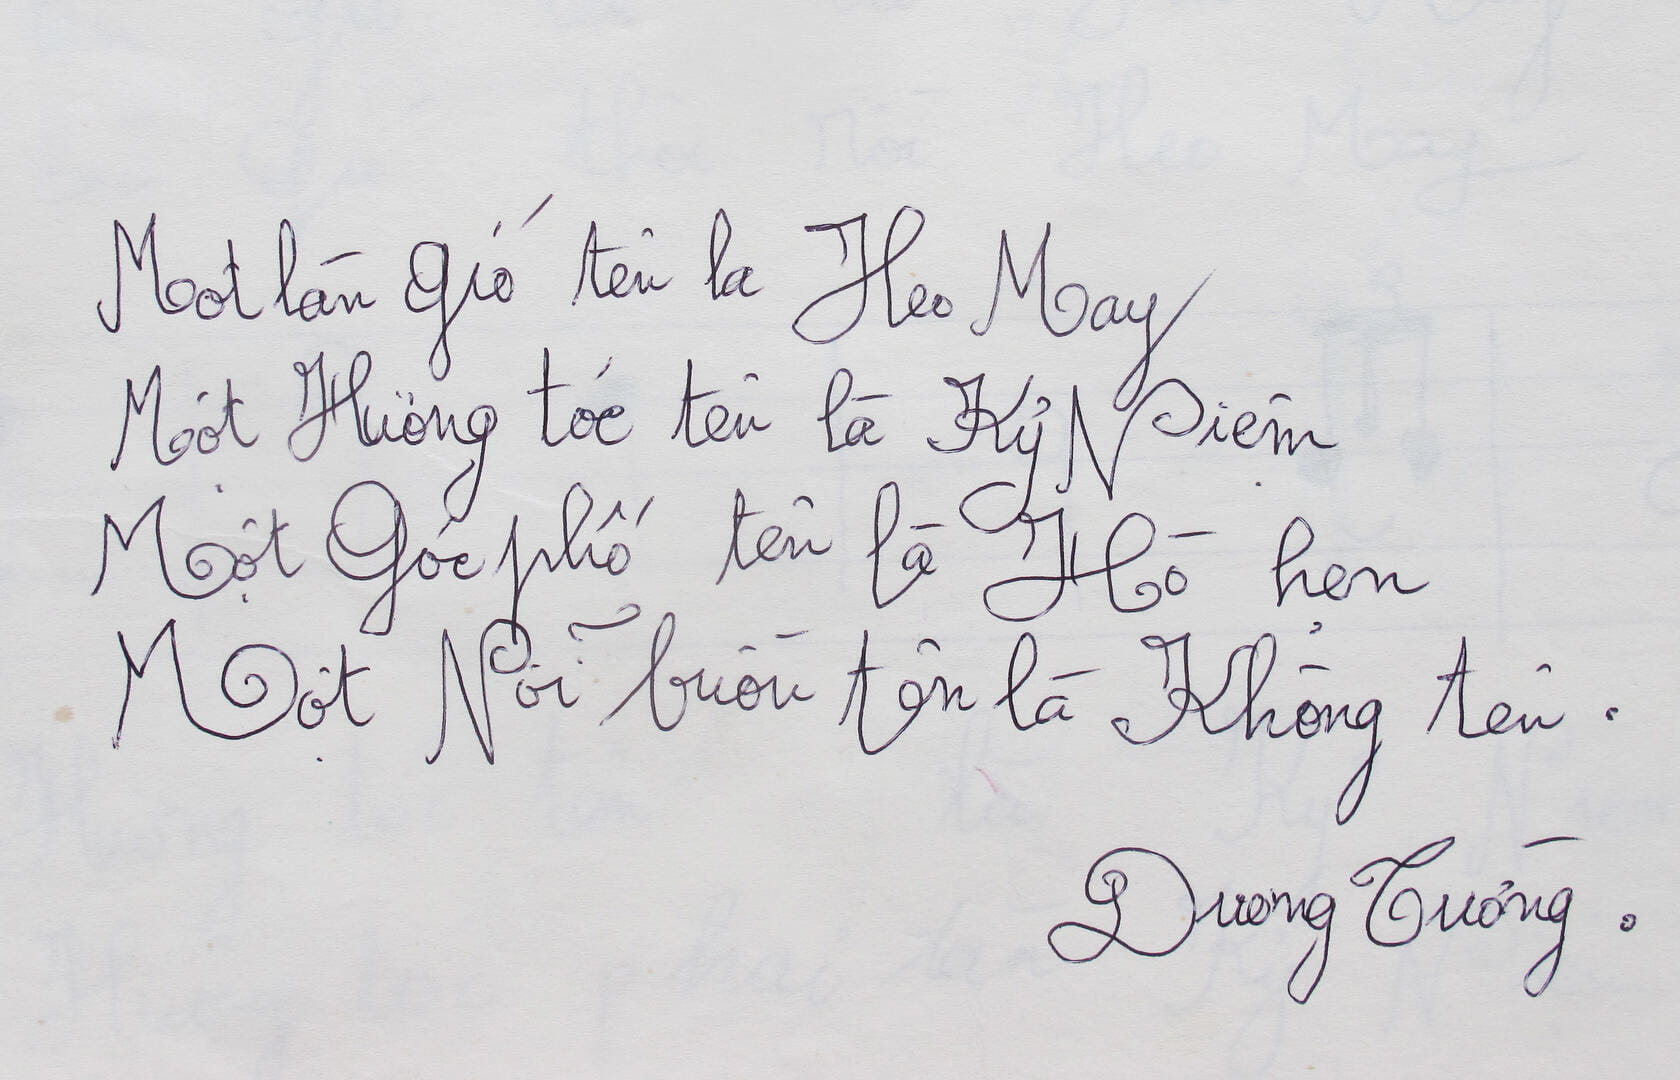 Một làn gió tên là Heo May
Một Hương tóc tên là Kỷ Niệm
Một Góc phố tên là Hò hẹn
Một Nỗi buồn tên là Không tên.
Dương Tường.